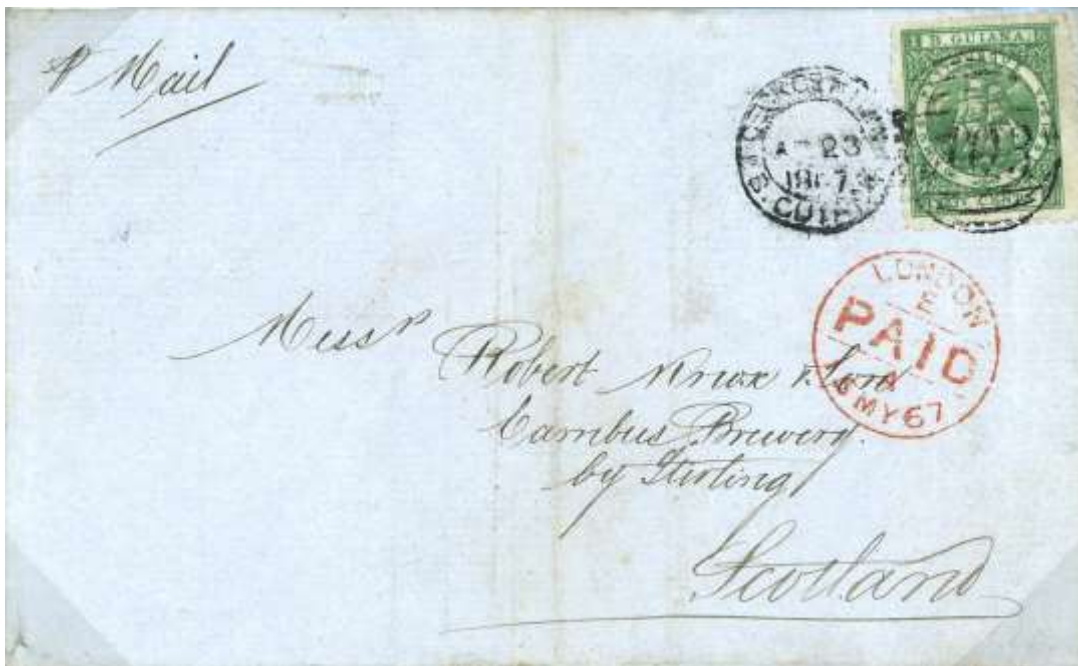 P Mail
B. GUIANA
AP 23
1867
B. GUIANA
LONDON
E
PAID
MY 67
Messrs
Robert Knox & Son
Cambus Brewery.
by Stirling
Scotland